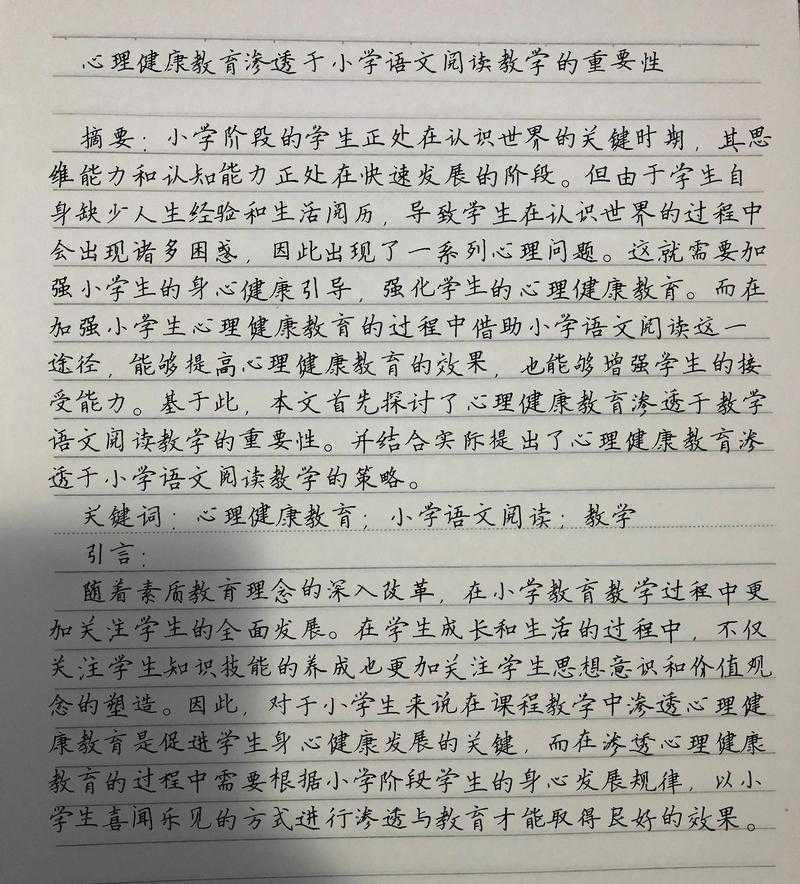 心理健康教育渗透于小学语文阅读教学的重要性
摘要：小学阶段的学生正处在认识世界的关键时期，其思
维能力和认知能力正处在快速发展的阶段。但由于学生自
身缺少人生经验和生活阅历，导致学生在认识世界的过程中
会出现诸多困惑，因此出现了一系列心理问题。这就需要加
强小学生的身心健康引导，强化学生的心理健康教育。而在
加强小学生心理健康教育的过程中借助小学语文阅读这一
途径，能够提高心理健康教育的效果，也能够增强学生的接
受能力。基于此，本文首先探讨了心理健康教育渗透于教学
语文阅读教学的重要性。并结合实际提出了心理健康教育渗
透于小学语文阅读教学的策略。
关键词：心理健康教育；小学语文阅读；教学
引言：
随着素质教育理念的深入改革，在小学教育教学过程中更
加关注学生的全面发展。在学生成长和生活的过程中，不仅
关注学生知识技能的养成也更加关注学生思想意识和价值观
念的塑造。因此，对于小学生来说在课程教学中渗透心理健
康教育是促进学生身心健康发展的关键，而在渗透心理健康
教育的过程中需要根据小学阶段学生的身心发展规律，以小
学生喜闻乐见的方式进行渗透与教育才能取得良好的效果。